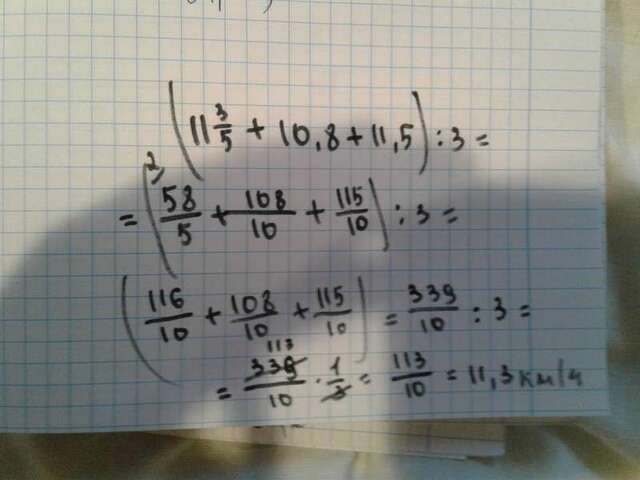 (11 3/5 + 10,8 + 11,5) : 3 =
= (58/5 ²⁾ + 108/10 + 115/10) : 3 =
(116/10 + 108/10 + 115/10) = 339/10 : 3 =
= 339/10 · 1/3 = 113/10 = 11,3 км/ч
113